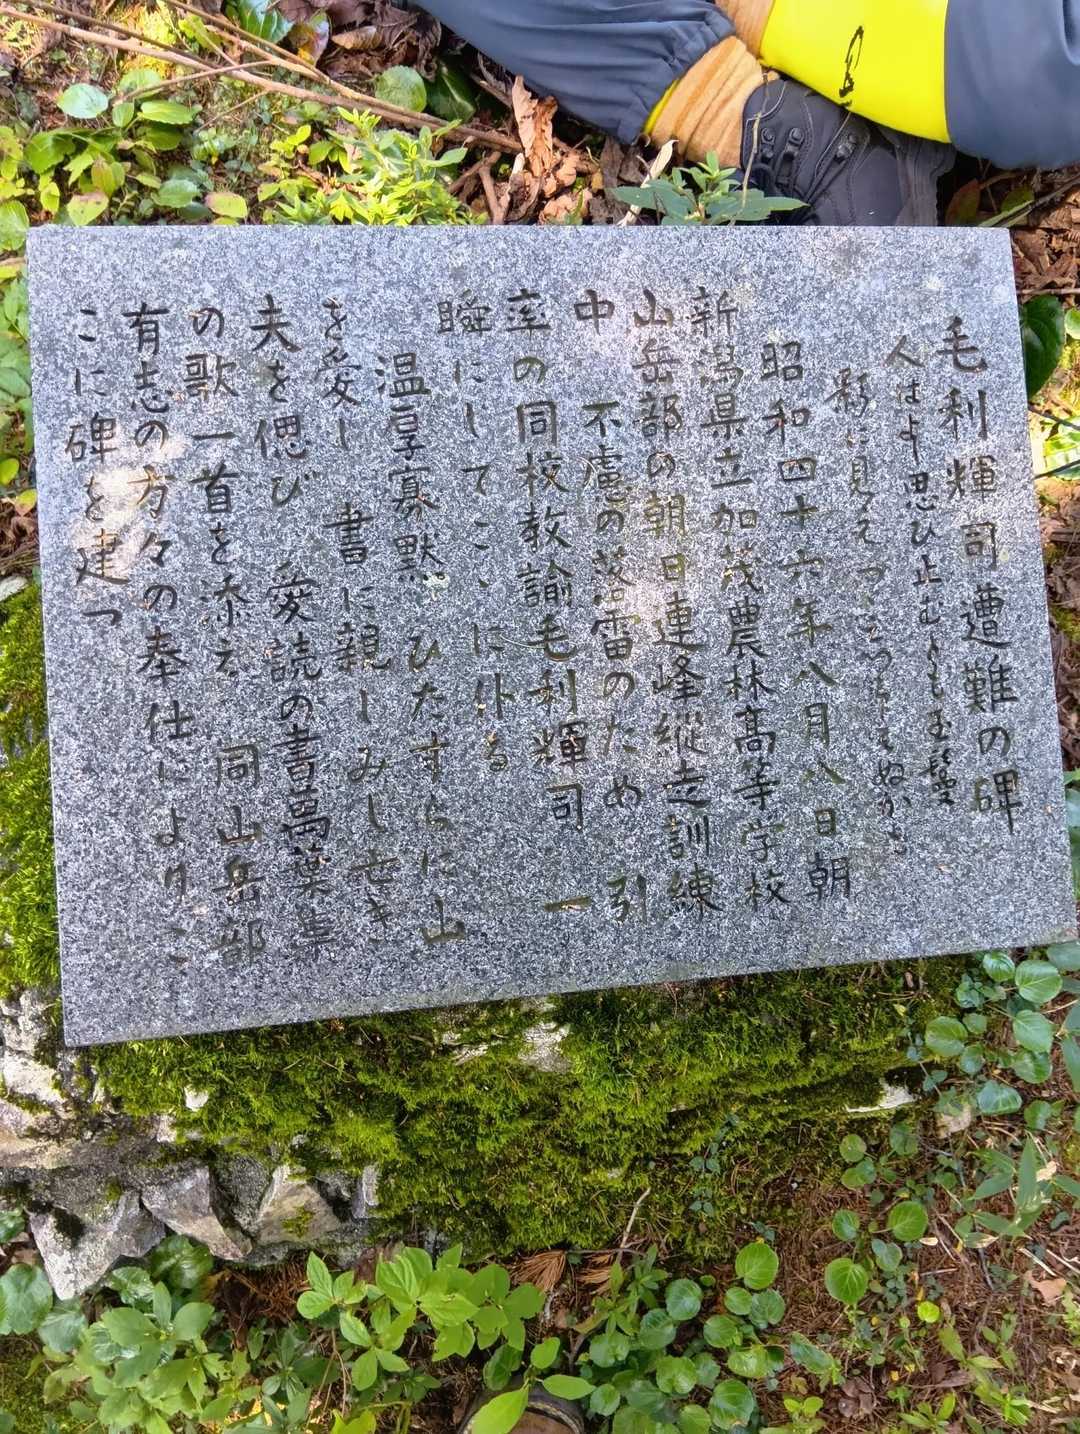 毛利輝司遭難の碑
人はよし思ひ止むとも玉鬘
影に見えつゝ忘らえぬかも
昭和四十六年八月八日朝
新潟県立加茂農林高等学校
山岳部の朝日連峰縦走訓練
中 不慮の落雷のため 引
率の同校教諭毛利輝司 一
瞬にしてこゝに仆る
温厚寡黙 ひたすらに山
を愛し 書に親しみし亡き
夫を偲び 愛読の書萬葉集
の歌一首を添え 同山岳部
有志の方々の奉仕によりこ
こに碑を建つ